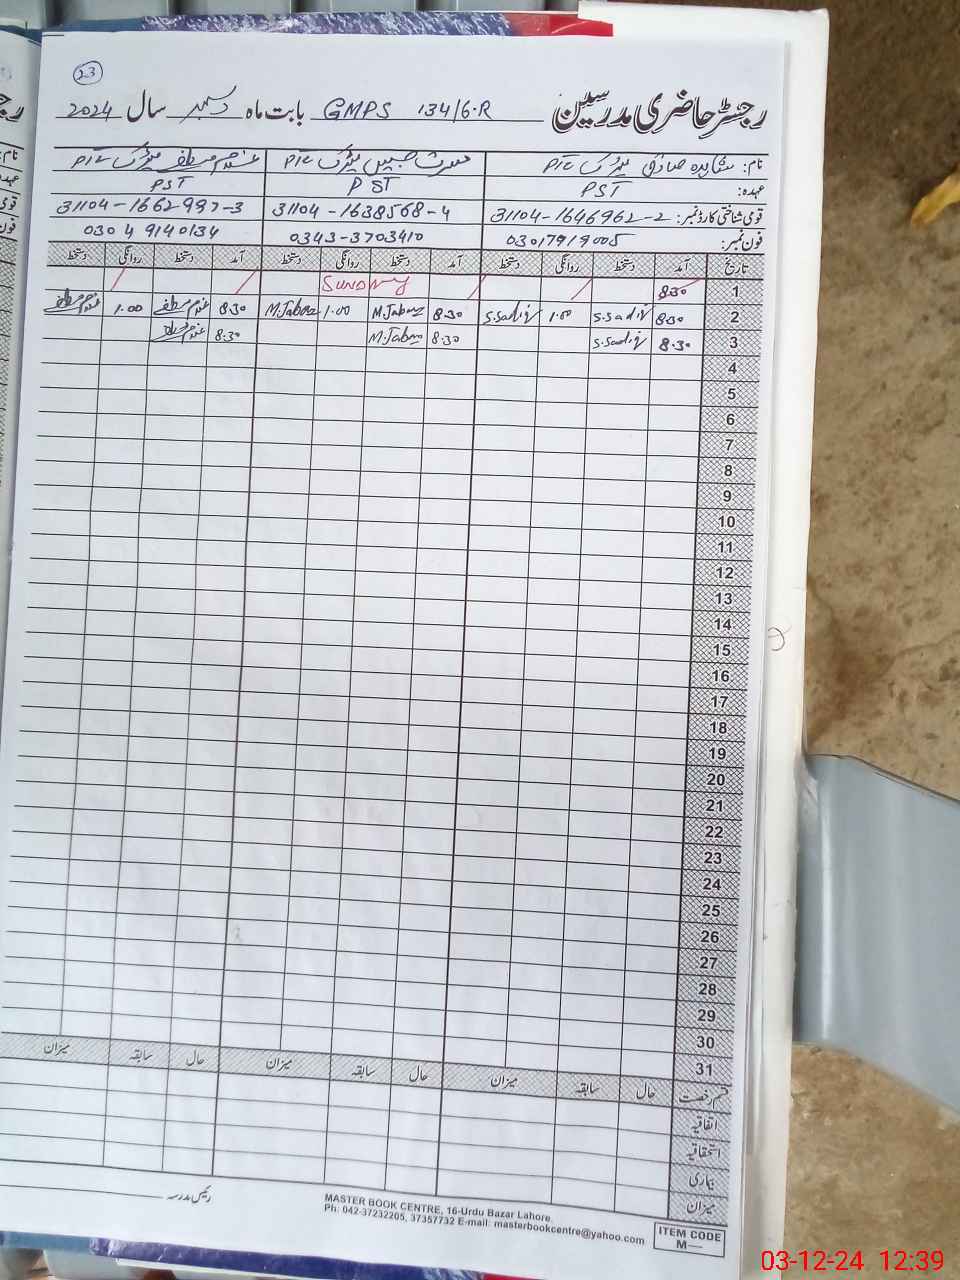 23
رجسٹر حاضری مدرسین GMPS 134/6-R بابت ماہ دسمبر سال 2024
نام: شاہدہ صادق
عہدہ: PST PST PST
قومی شناختی کارڈ نمبر: 31104-1646962-2 31104-1638568-4 31104-1662997-3
فون نمبر: 03017919005 0343-3703410 0304 9140134
تاریخ آمد دستخط روانگی دستخط آمد دستخط روانگی دستخط آمد دستخط روانگی دستخط
1 8:30 Sunday
2 8:30 S.Sadiq 1.00 S.Sadiq 8:30 M.Jabeen 1.00 M.Jabeen 8:30 1.00
3 8:30 S.Sadiq 8:30 M.Jabeen 8:30
4
5
6
7
8
9
10
11
12
13
14
15
16
17
18
19
20
21
22
23
24
25
26
27
28
29
30
31
قسم رخصت حال سابقہ میزان حال سابقہ میزان حال سابقہ میزان
اتفاقیہ
استحقاقیہ
بیماری
میزان
رئیس مدرسہ
MASTER BOOK CENTRE, 16-Urdu Bazar Lahore.
Ph: 042-37232205, 37357732 E-mail: masterbookcentre@yahoo.com
ITEM CODE
M—
03-12-24 12:39